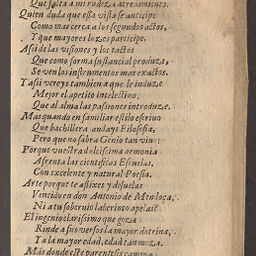 Que falta a mi rudeza atreuimiento.
Quien duda que essa vista se anticipe
Como mas cerca a los segundos actos,
Y que mayores luzes participe.
Assi de las visiones y los tactos
Que como forma sustancial produze,
Se ven los instrumentos mas exactos.
Y assi vereys tambien a que le induze
Mejor el apetito intelectiuo,
Que al alma las passiones introduze.
Mas quando en familiar estilo escriuo
Que bachillera andays Filosofia,
Pero que no sabra Genio tan viuo?
Porque vuestra dulcissima armonia
Afrenta las cientificas Escuelas,
Con excelente y natural Poesia.
Arte porque te afixes y desuelas
Vencido en don Antonio de Mendoça,
Ni a tu soberuio laberinto apelas?
El ingenio clarissimo que goza
Rinde a sus versos la mayor dotrina,
Ya la mayor edad, edad tan moza.
Mas donde este parentesis camina